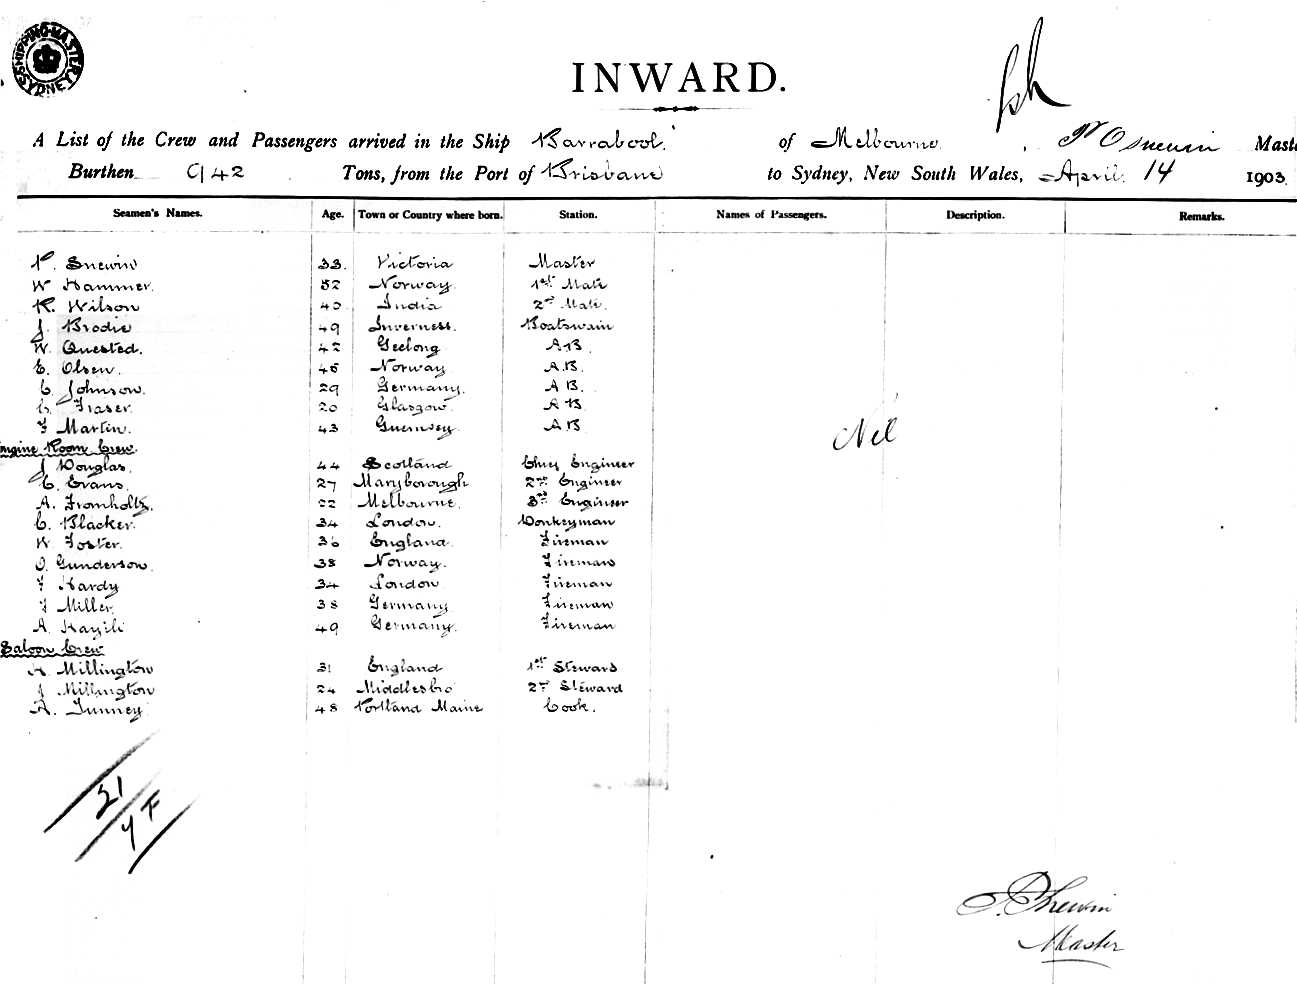 SHIPPING MASTER SYDNEY
INWARD.
A List of the Crew and Passengers arrived in the Ship Barrabool. of Melbourne, Snewin Maste
Burthen 942 Tons, from the Port of Brisbane to Sydney, New South Wales, April 14 1903.
Seamen's Names. Age. Town or Country where born. Station. Names of Passengers. Description. Remarks.
P. Snewin 33. Victoria Master
W Hammer. 52 Norway. 1st Mate
R. Wilson 40 India 2nd Mate.
J. Brodie 49 Inverness. Boatswain
W. Quested. 42 Geelong AB.
E. Olsen. 46 Norway A.B.
C. Johnson. 29 Germany. A B.
C. Fraser. 20 Glasgow. A B.
F Martin. 43 Guernsey. A B
Nil
Engine Room Crew.
J Douglas. 44 Scotland Chief Engineer
C. Evans. 27 Maryborough 2nd Engineer
A. Fromholtz. 22 Melbourne. 3rd Engineer
C. Blacker. 34 London. Donkeyman
W Foster. 36 England. Fireman
O. Gunderson. 38 Norway. Fireman
F Hardy 34 London Fireman
F Miller. 38 Germany Fireman
A. 49 Germany. Fireman
Saloon Crew
Millington 31 England 1st Steward
J Millington 24 Middlesbro 2nd Steward
A. Tunney 48 Portland Maine Cook.
21
YF
P. Snewin
Master